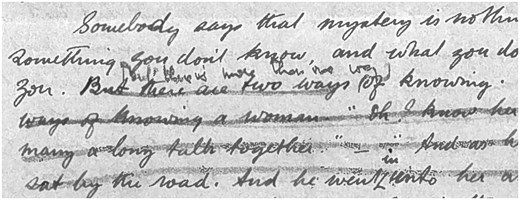 Somebody says that mystery is nothin
something you don't know, and what you do
but there is more than one way
you. But there are two ways of knowing.
ways of knowing a woman. "Oh, I know her
many a long talk together." — And as h
in
sat by the road. And he went unto her a